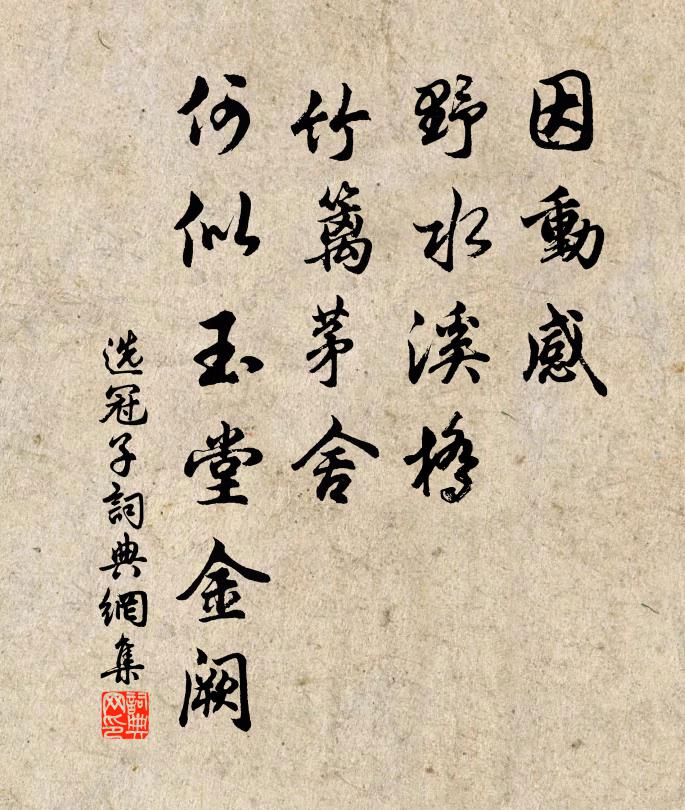 因動感
野水溪橋
竹籬茅舍
何似玉堂金闕
选冠子詞典網集
詞典
网印